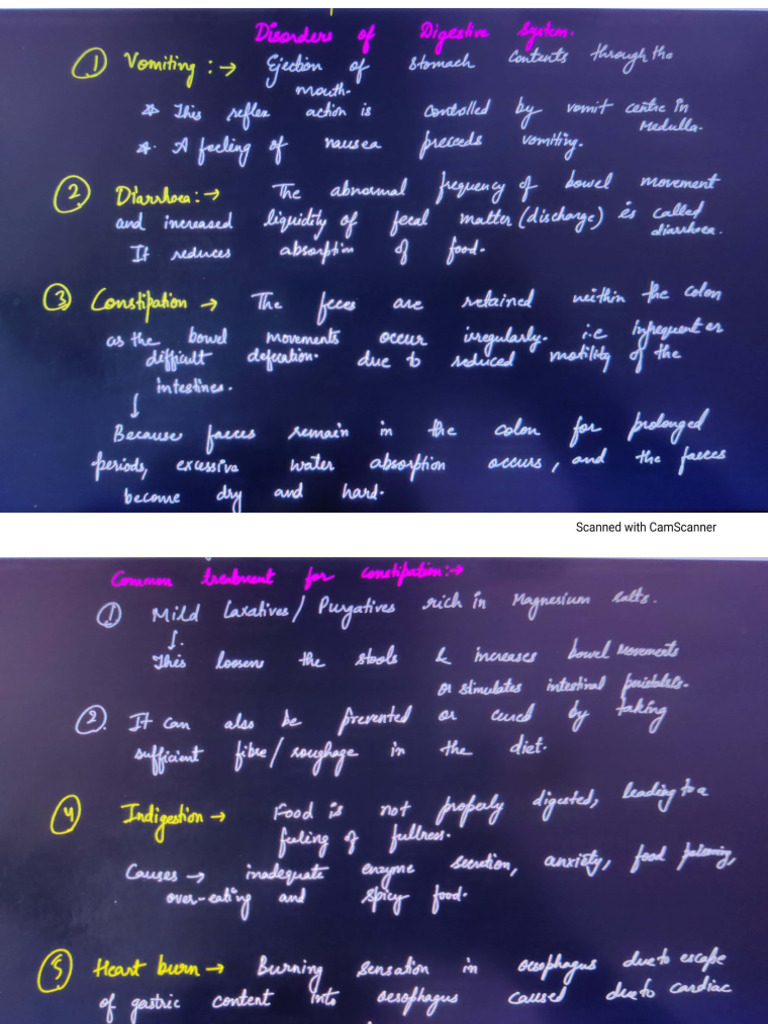 Disorders of Digestive System.
① Vomiting :→ Ejection of stomach contents through the
mouth.
* This reflex action is controlled by vomit centre in
Medulla.
* A feeling of nausea preceeds vomiting.
② Diarrhoea :→ The abnormal frequency of bowel movement
and increased liquidity of fecal matter (discharge) is called
diarrhoea.
It reduces absorption of food.
③ Constipation → The feces are retained neithin the colon
as the bowel movements occur irregularly. i.e infrequent or
difficult defecation. due to reduced motility of the
intestines.
↓
Because faeces remain in the colon for prolonged
periods, excessive water absorption occurs, and the faeces
become dry and hard.
Scanned with CamScanner
Common treatment for constipation :→
① Mild Laxatives/Purgatives rich in Magnesium salts.
↓
This loosens the stools & increases bowel movements
or stimulates intestinal peristalsis.
②. It can also be prevented or cured by taking
sufficient fibre/roughage in the diet.
④ Indigestion → Food is not properly digested, leading to a
feeling of fullness.
Causes → inadequate enzyme secretion, anxiety, food poisoning,
over-eating and spicy food.
⑤ Heart burn → Burning sensation in oesophagus due to escape
of gastric content into oesophagus caused due to cardiac